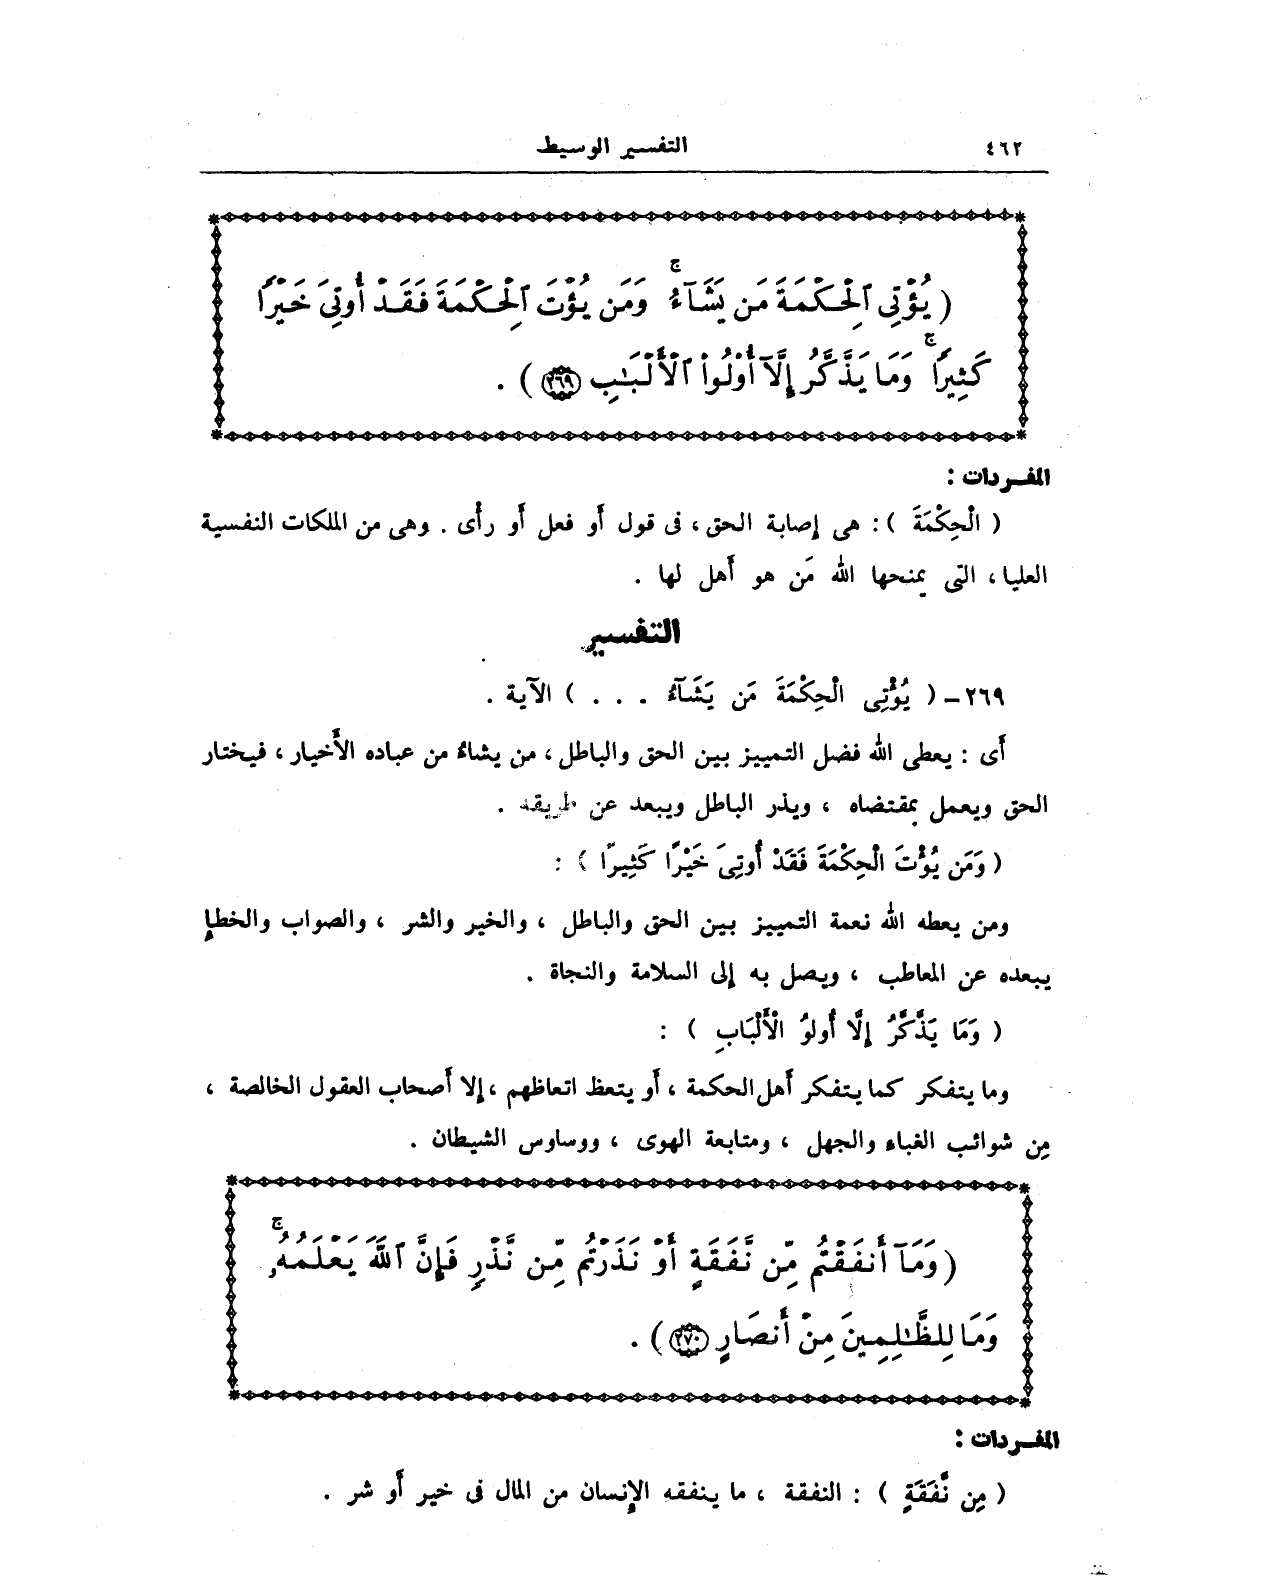 ٤٦٢
التفسير الوسيط
( يُؤْتِى ٱلْحِكْمَةَ مَن يَشَآءُ ۚ وَمَن يُؤْتَ ٱلْحِكْمَةَ فَقَدْ أُوتِىَ خَيْرًا
كَثِيرًا ۚ وَمَا يَذَّكَّرُ إِلَّآ أُوْلُواْ ٱلْأَلْبَـٰبِ ٢٦٩ ) .
المفـردات :
( الْحِكْمَةَ ) : هى إصابة الحق ، فى قول أو فعل أو رأى . وهى من الملكات النفسية
العليا ، التى يمنحها الله مَن هو أهل لها .
التفسير
٢٦٩- ( يُؤْتِى الْحِكْمَةَ مَن يَشَآءُ . . . ) الآية .
أى : يعطى الله فضل التمييز بين الحق والباطل ، من يشاءُ من عباده الأخيار ، فيختار
الحق ويعمل بمقتضاه ، ويذر الباطل ويبعد عن طريقه .
( وَمَن يُؤْتَ الْحِكْمَةَ فَقَدْ أُوتِىَ خَيْرًا كَثِيرًا ) :
ومن يعطه الله نعمة التمييز بين الحق والباطل ، والخير والشر ، والصواب والخطإ
يبعده عن المعاطب ، ويصل به إلى السلامة والنجاة .
( وَمَا يَذَّكَّرُ إِلَّا أُولُو الْأَلْبَابِ ) :
وما يتفكر كما يتفكر أهل الحكمة ، أو يتعظ اتعاظهم ، إلا أصحاب العقول الخالصة ،
مِن شوائب الغباء والجهل ، ومتابعة الهوى ، ووساوس الشيطان .
( وَمَآ أَنفَقْتُم مِّن نَّفَقَةٍ أَوْ نَذَرْتُم مِّن نَّذْرٍ فَإِنَّ ٱللَّهَ يَعْلَمُهُۥ ۚ
وَمَا لِلظَّـٰلِمِينَ مِنْ أَنصَارٍ ٢٧٠ ) .
المفـردات :
( مِن نَّفَقَةٍ ) : النفقة ، ما ينفقه الإنسان من المال فى خير أو شر .